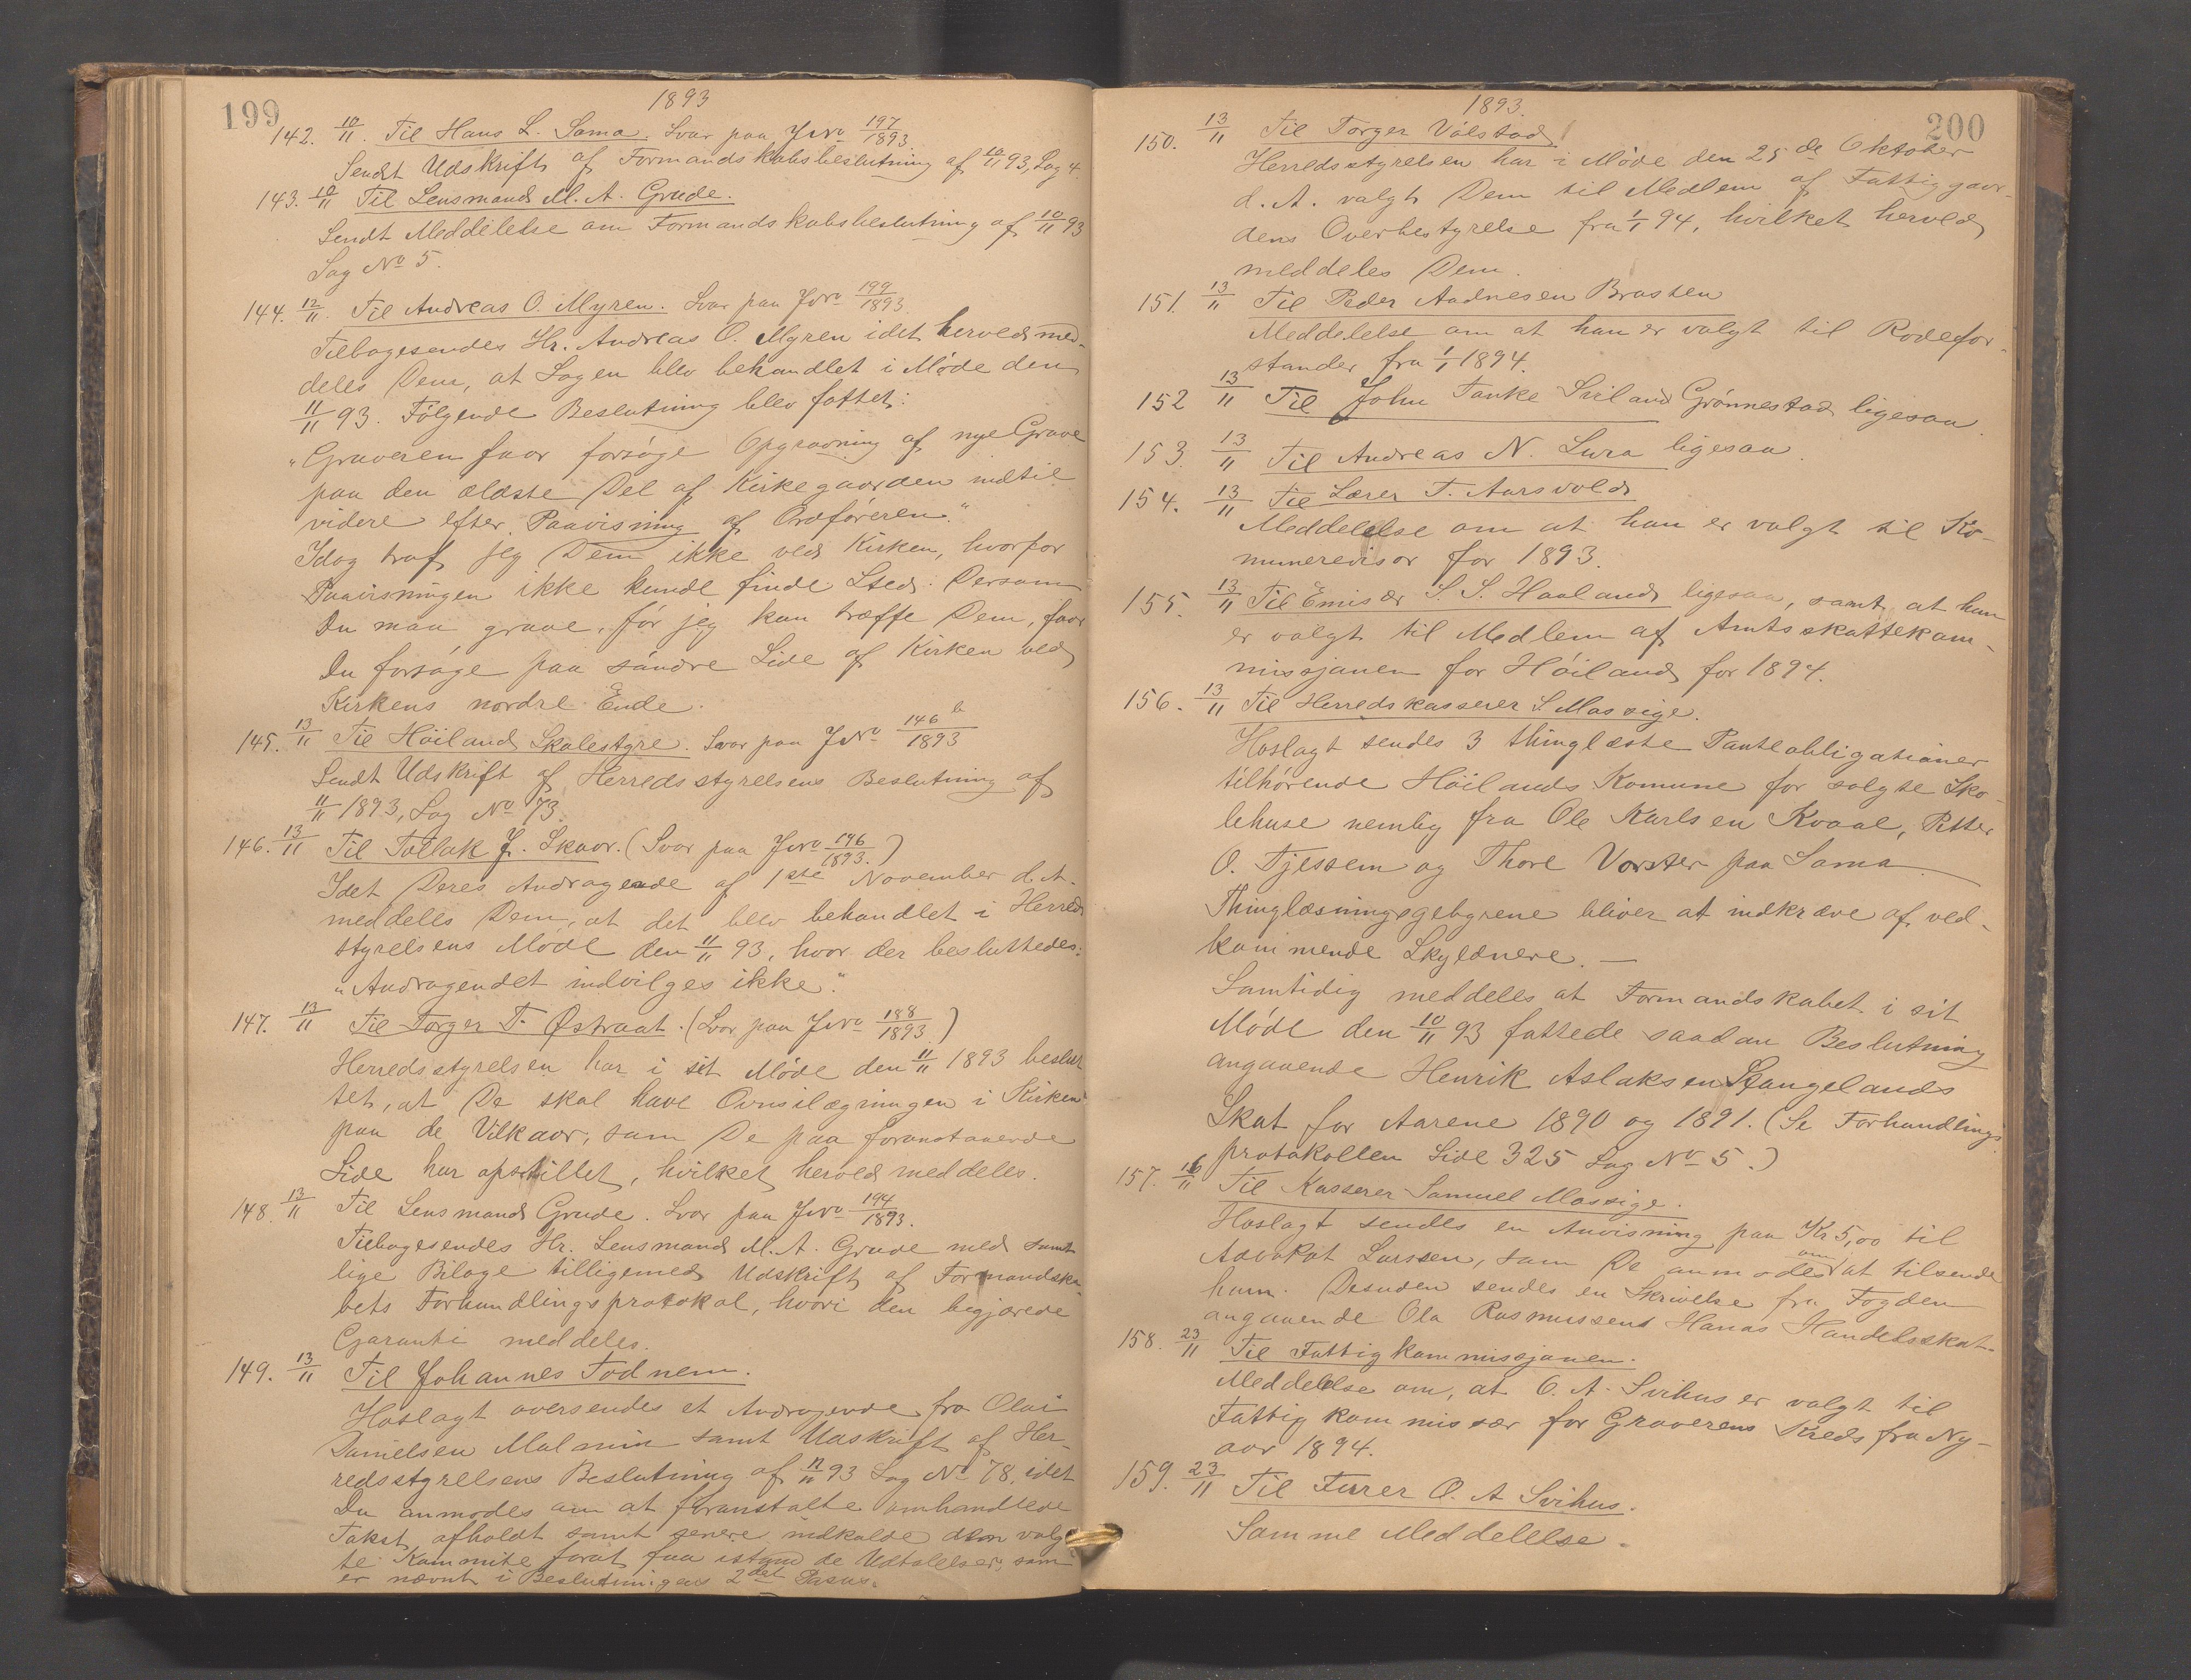 199
1893
142. 10/11. Til Hans L. Soma. Svar paa J.No 197/1893.
Sendt Udskrift af Formandskabsbeslutning af 10/11 93, Sag 4.
143. 10/11 Til Lensmand M. A. Grude.
Sendt Meddelelse om Formandskabsbeslutning af 10/11 93
Sag No 5.
144. 12/11. Til Andreas O. Myren. Svar paa J.No 199/1893.
Tilbagesendes Hr. Andreas O. Myren idet herved med-
deles Dem, at Sagen blev behandlet i Møde den
11/11 93. Følgende Beslutning blev fattet:
"Graveren faar forsøge Opgravning af nye Grave
paa den ældste Del af Kirkegaarden indtil
videre efter Paavisning af Ordføreren."
Idag traf jeg Dem ikke ved Kirken, hvorfor
Paavisningen ikke kunde finde Sted. Dersom
Du maa grave, før jeg kan træffe Dem, faar
Du forsøge paa søndre Side af Kirken ved
Kirkens nordre Ende.
145. 13/11 Til Höiland Skolestyre. Svar paa J.No 146 b/1893
Sendt Udskrift af Herredsstyrelsens Beslutning af
11/11 1893, Sag No 73.
146. 13/11 Til Tollak J. Skaar. (Svar paa J.No 196/1893.)
Idet Deres Andragende af 1ste November d. A.
meddeles Dem, at det blev behandlet i Herreds
styrelsens Møde den 11/11 93, hvor der besluttedes:
"Andragendet indvilges ikke."
147. 13/11 Til Torger T. Østraat. (Svar paa J.No 188/1893)
Herredsstyrelsen har i sit Møde den 11/11 1893 beslut
tet, at De skal have Ovnsilægningen i Kirken
paa de Vilkaar, som De paa foranstaaende
Side har opstillet, hvilket herved meddeles.
148. 13/11 Til Lensmand Grude. Svar paa J.No 194/1893.
Tilbagesendes Hr. Lensmand M. A. Grude med samt
lige Bilage tilligemed Udskrift af Formandska-
bets Forhandlingsprotokol, hvori den begjærede
Garanti meddeles.
149. 13/11 Til Johannes Todnem.
Hoslagt oversendes et Andragende fra Olai
Danielsen Malmin samt Udskrift af Her-
redsstyrelsens Beslutning af 11/11 93 Sag No 78, idet
Du anmodes om at foranstalte omhandlede
Takst afholdt samt senere indkalde den valg
te Kommite forat faa istand de Udtalelser, som
er nævnt i Beslutningens 2det Passus.
200
1893.
150. 13/11 Til Torger Válstad
Herredsstyrelsen har i Møde den 25de Oktober
d. A. valgt Dem til Medlem af Fattiggaar-
dens Overbestyrelse fra 1/1 94, hvilket herved
meddeles Dem.
151. 13/11 Til Peder Aadnesen Brasten
Meddelelse om at han er valgt til Rodefor-
stander fra 1/1 1894.
152 13/11 Til John Tanke Sviland Grönnestad ligesaa.
153. 13/11 Til Andreas N. Lura ligesaa.
154. 13/11 Til Lærer T. Aarsvold
Meddelelse om at han er valgt til Ko-
munerevisor for 1893.
155. 13/11 Til Emisær S. S. Haaland ligesaa, samt at han
er valgt til Medlem af Amtsskattekom-
missjonen for Höiland for 1894.
156. 13/11 Til Herredskasserer S. Massige.
Hoslagt sendes 3 thinglæste Panteobligationer
tilhørende Höilands Komune for solgte Sko-
lehuse nemlig fra Ole Karlsen Kvaal, Petter
O. Tjessem og Thore Vorster paa Soma.
Thinglæsningsgebyrene bliver at indkræve af ved-
kommende Skyldnere. —
Samtidig meddeles at Formandskabet i sit
Møde den 10/11 93 fattede saadan Beslutning
angaaende Henrik Aslaksen Stangelands
Skat for Aarene 1890 og 1891. (Se Forhandlings
protokollen Side 325 Sag No 5.)
157. 16/11 Til Kasserer Samuel Massige.
Hoslagt sendes en Anvisning paa Kr 5,00 til
Advokat Larssen, som De anmodes om at tilsende
ham. Desuden sendes en Skrivelse fra Fogden
angaaende Ola Rasmussens Hanas Handelsskat.
158. 23/11 Til Fattigkommissjonen.
Meddelelse om, at O. A. Svihus er valgt til
Fattigkommissær for Graverens Kreds fra Ny-
aar 1894.
159. 23/11 Til Furer O. A Svihus.
Samme Meddelelse.